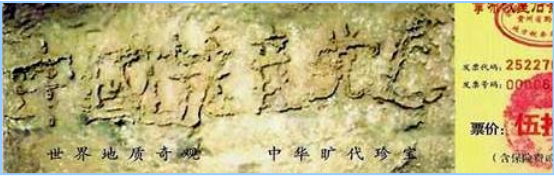 中國共產党亡
世界地质奇观 中华旷代珍宝
贵州省
发票代码：25227
发票号码：00006
票价：伍
（含保险费